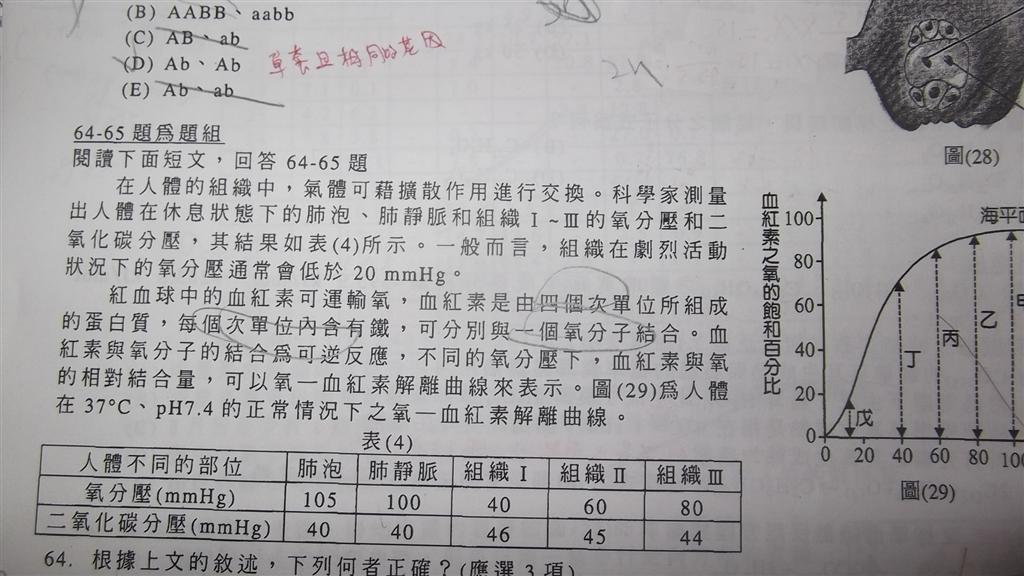 (B) AABB、aabb
(C) AB、ab
(D) Ab、Ab
(E) Ab、ab
單套且相同的基因
2n
64-65 題爲題組
閱讀下面短文，回答 64-65 題
在人體的組織中，氣體可藉擴散作用進行交換。科學家測量
出人體在休息狀態下的肺泡、肺靜脈和組織 I ~ III 的氧分壓和二
氧化碳分壓，其結果如表(4)所示。一般而言，組織在劇烈活動
狀況下的氧分壓通常會低於 20 mmHg。
紅血球中的血紅素可運輸氧，血紅素是由四個次單位所組成
的蛋白質，每個次單位內含有鐵，可分別與一個氧分子結合。血
紅素與氧分子的結合爲可逆反應，不同的氧分壓下，血紅素與氧
的相對結合量，可以氧一血紅素解離曲線來表示。圖(29)爲人體
在 37°C、pH7.4 的正常情況下之氧一血紅素解離曲線。
表(4)
人體不同的部位 肺泡 肺靜脈 組織 I 組織 II 組織 III
氧分壓(mmHg) 105 100 40 60 80
二氧化碳分壓(mmHg) 40 40 46 45 44
64. 根據上文的敘述，下列何者正確？(應選 3 項)
圖(28)
血紅素之氧的飽和百分比
海平面
100
80
60
40
20
0
戊
丁
丙
乙
甲
0 20 40 60 80 100
圖(29)